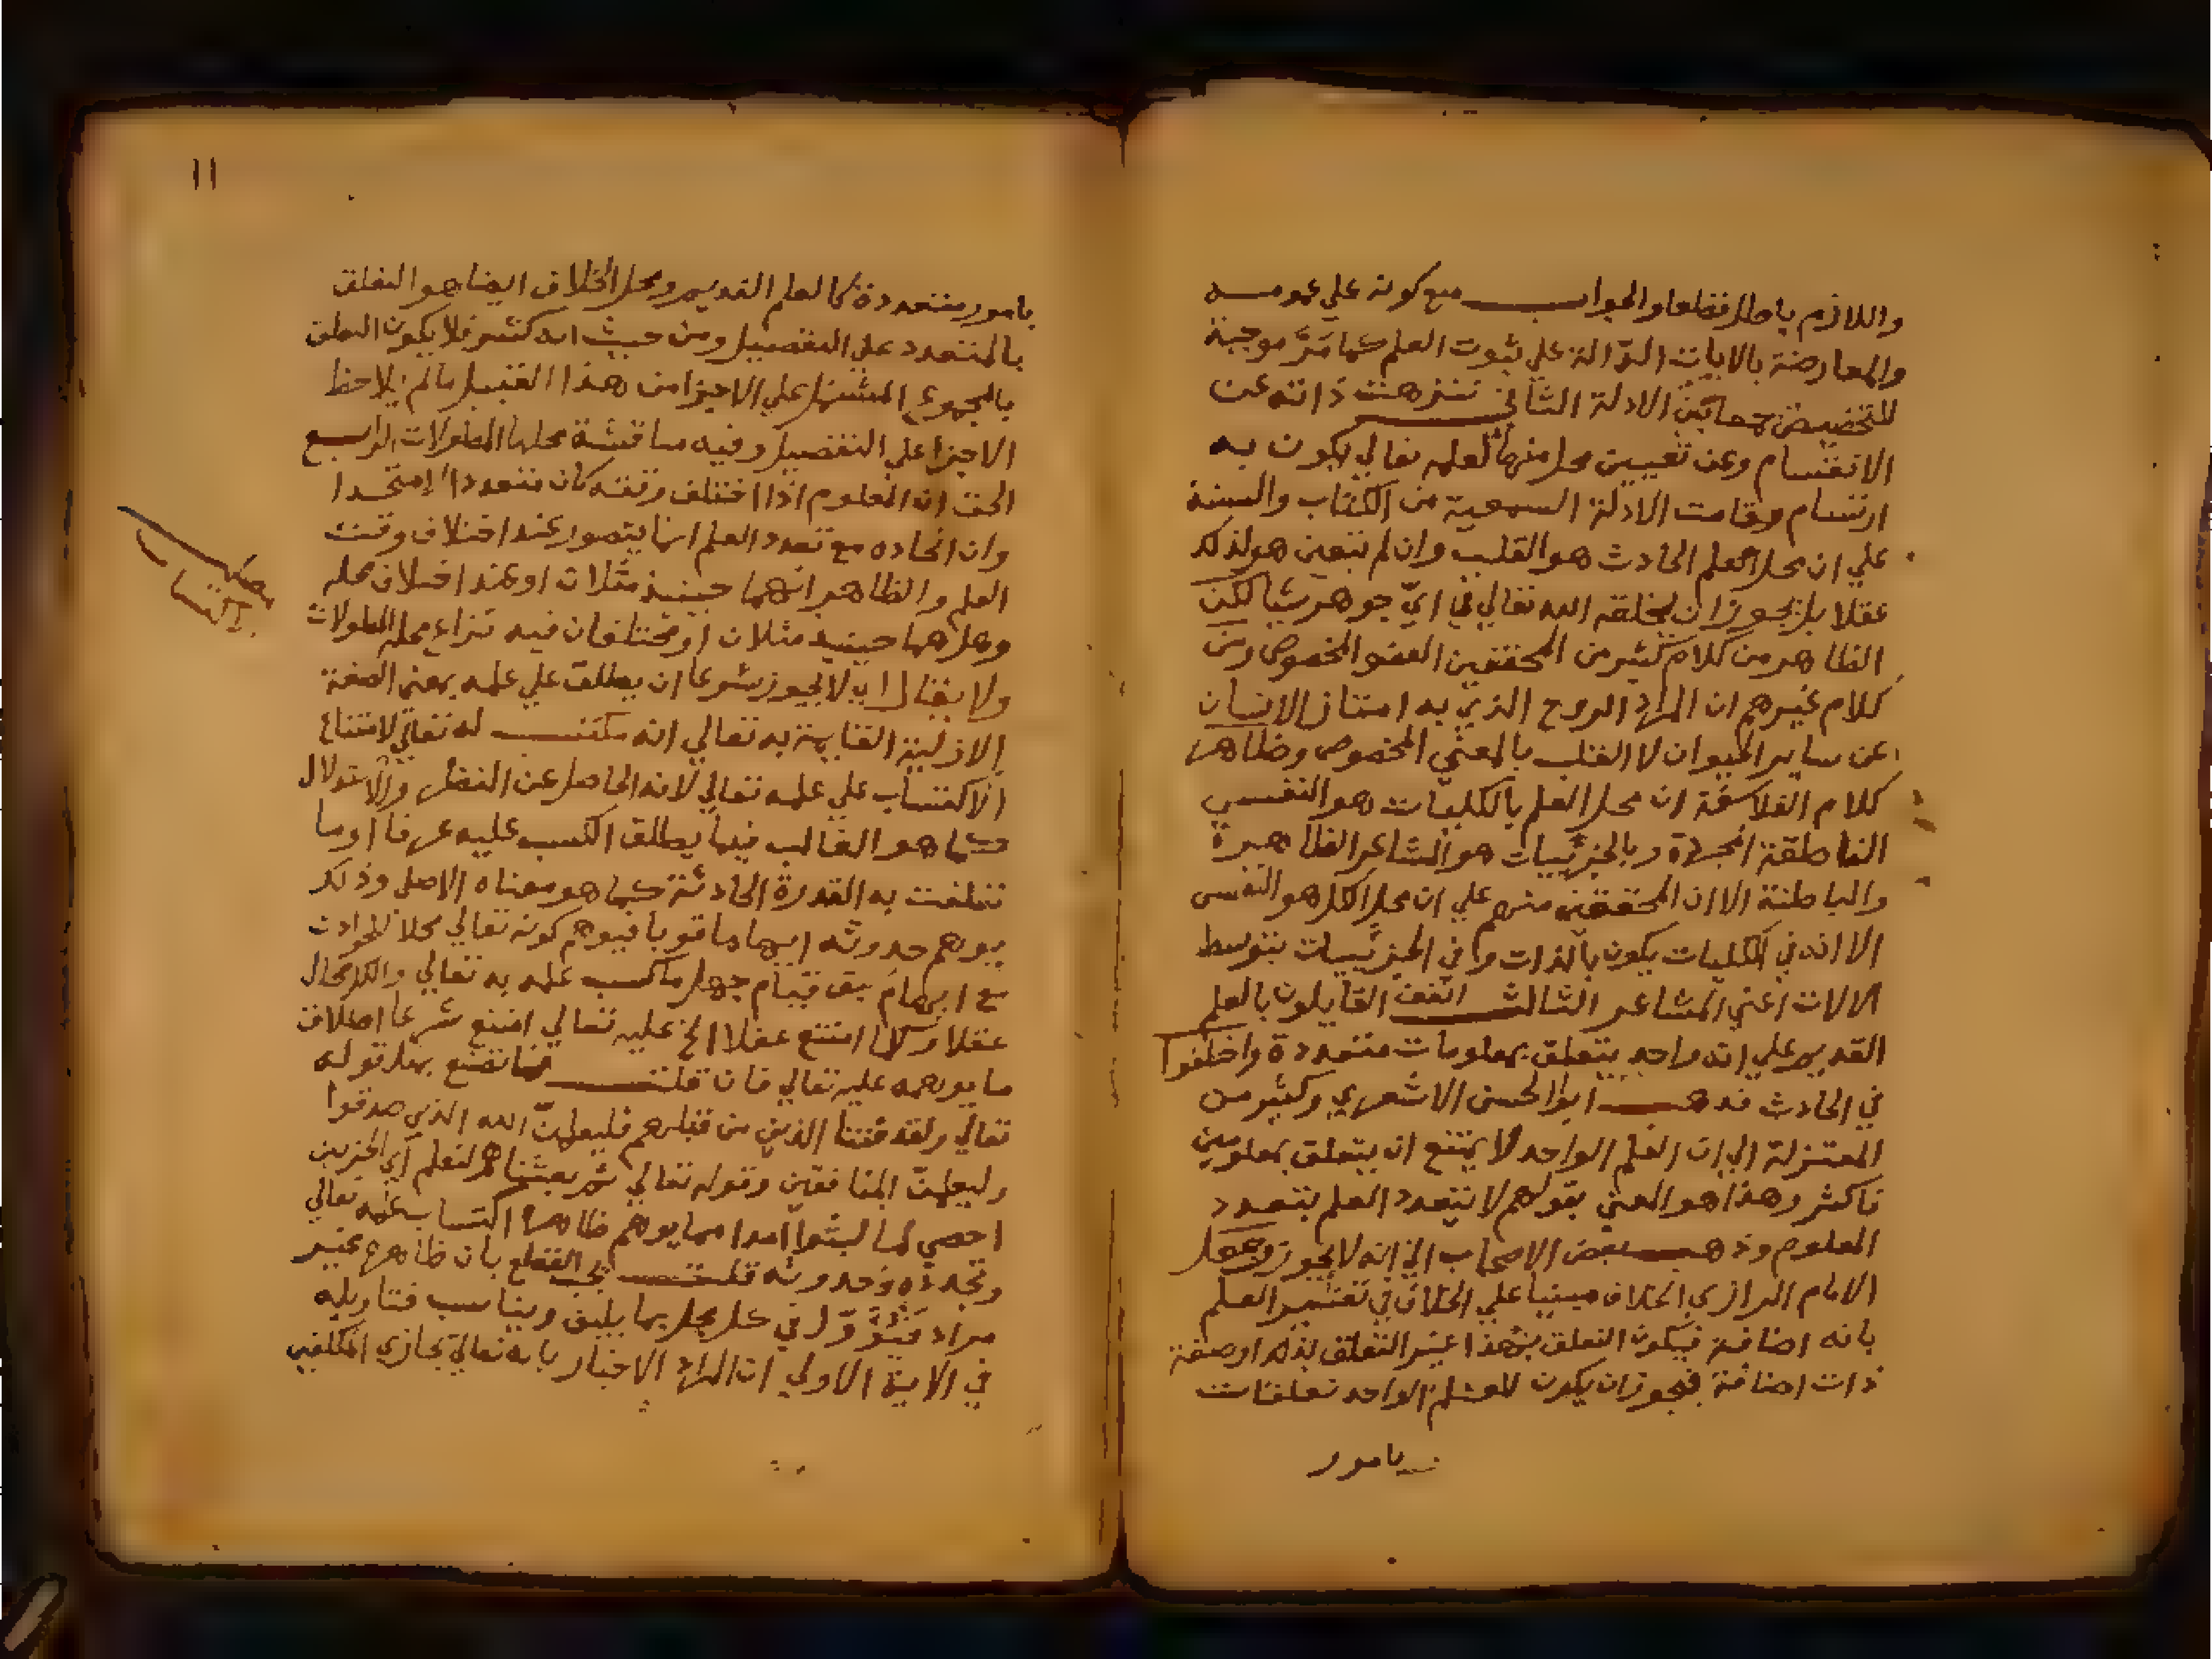 واللازم باطل قطعا والجواب منع كونه علي عمومه
والمعارضة بالايات الدّالة علي ثبوت العلم كما مَرَّ موجبة
للتخصيص جمعا بَيْن الادلة الثاني تنزهت ذاته عن
الانقسام وعن تعيين محل منها لعلمه تعالي يكون به
ارتسام وقامت الادلة السمعية من الكتاب والسنة
علي ان محل العلم الحادث هو القلب وان لم يتعين هو لذلك
عقلا بل يجوز ان يخلقه الله تعالي في ايّ جوهر شيا لكن
الظاهر من كلام كثير من المحققين العضو المخصوص ومن
كلام غيرهم ان المراد الروح الذي به امتاز الانسان
عن ساير الحيوان لا القلب بالمعني المخصوص وظاهر
كلام الفلاسفة ان محل العلم بالكليات هو النفس
الناطقة المجردة وبالجزئيات هو المشاعر الظاهرة
والباطنة الا ان المحققين منهم علي ان محل الكل هو النفس
الا انه في الكليات يكون بالذات وفي الجزئييات بتوسط
الالات اعني المشاعر الثالث اتفق القايلون بالعلم
القديم علي انه واحد يتعلق بمعلومات متعددة واختلفوا
في الحادث فذهب ابو الحسن الاشعري وكثير من
المعتزلة الي ان العلم الواحد لا يمتنع ان يتعلق بمعلومين
فاكثر وهذا هو المعني بقولهم لا يتعدد العلم بتعدد
المعلوم وذهب بعض الاصحاب الي انه لا يجوز وجعل
الامام الرازي الخلاف مبنيا علي الخلاف في تفسير العلم
بانه اضافة فيكون التعلق بهذا غير التعلق بذلك او صفة
ذات اضافة فيجوز ان يكون للعلم الواحد تعلقات
بامور
١١
بامور متعددة كالعلم القديم ومحل الخلاف ايضا هو التعلق
بالمتعدد علي التفصيل ومن حيث انه كثير فلا يكون التعلق
بالمجموع المشتمل علي الاجزا من هذا القبيل ما لم يلاحظ
الاجزا علي التفصيل وفيه مناقشة محلها المطولات الرابع
الحق ان المعلوم اذا اختلف وقته كان متعددا لا متحدا
وان اتحاده مع تعدد العلم انما يتصور عند اختلاف وقت
العلم والظاهر انهما حينيذ مثلان او عند اختلاف محله
وهل هما حينيذ مثلان او مختلفان فيه نزاع محله المطولات
ولا يقال اي لا يجوز شرعا ان يطلق علي علمه بمعني الصفة
الازلية القايمة به تعالي انه مكتسب له تعالي لامتناع
الاكتساب علي علمه تعالي لانه الحاصل عن النظر والاستدلال
كما هو الغالب فيما يطلق الكسب عليه عرفا او ما
تعلقت به القدرة الحادثة كما هو معناه الاصلي وذلك
يوهم حدوثه ايهاما قويا فيوهم كونه تعالي محلا للحوادث
مع ايهام سبق قيام جهل ما كسب علمه به تعالي والكل محال
عقلا وكلما امتنع عقلا الخ عليه تعالي امتنع شرعا اطلاق
ما يوهمه عليه تعالي فان قلت فما تصنع بمثل قوله
تعالي ولقد فتنا الذين من قبلهم فليعلمنّ الله الذين صدقوا
وليعلمنّ المنافقين وقوله تعالي ثم بعثناهم لنعلم اي الحزبين
احصي لما لبثوا امدا مما يوهم ظاهره اكتساب علمه تعالي
وتجدده وحدوثه قلت يجب القطع بان ظاهره غير
مراد فَيُؤَوَّل في كل محل بما يليق ويناسب فتاويله
في الاية الاولي ان المراد الاخبار بانه تعالي يجازي المكلفين